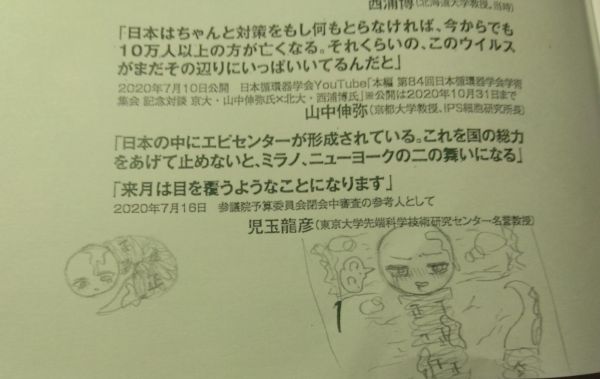 西浦博(北海道大学教授。当時)
「日本はちゃんと対策をもし何もとらなければ、今からでも
10万人以上の方が亡くなる。それくらいの、このウイルス
がまだその辺りにいっぱいいてるんだと」
2020年7月10日公開 日本循環器学会YouTube「本編 第84回日本循環器学会学術
集会 記念対談 京大・山中伸弥氏×北大・西浦博氏」※公開は2020年10月31日まで
山中伸弥(京都大学教授、iPS細胞研究所長)
「日本の中にエピセンターが形成されている。これを国の総力
をあげて止めないと、ミラノ、ニューヨークの二の舞いになる」
「来月は目を覆うようなことになります」
2020年7月16日 参議院予算委員会閉会中審査の参考人として
児玉龍彦(東京大学先端科学技術研究センター名誉教授)
1